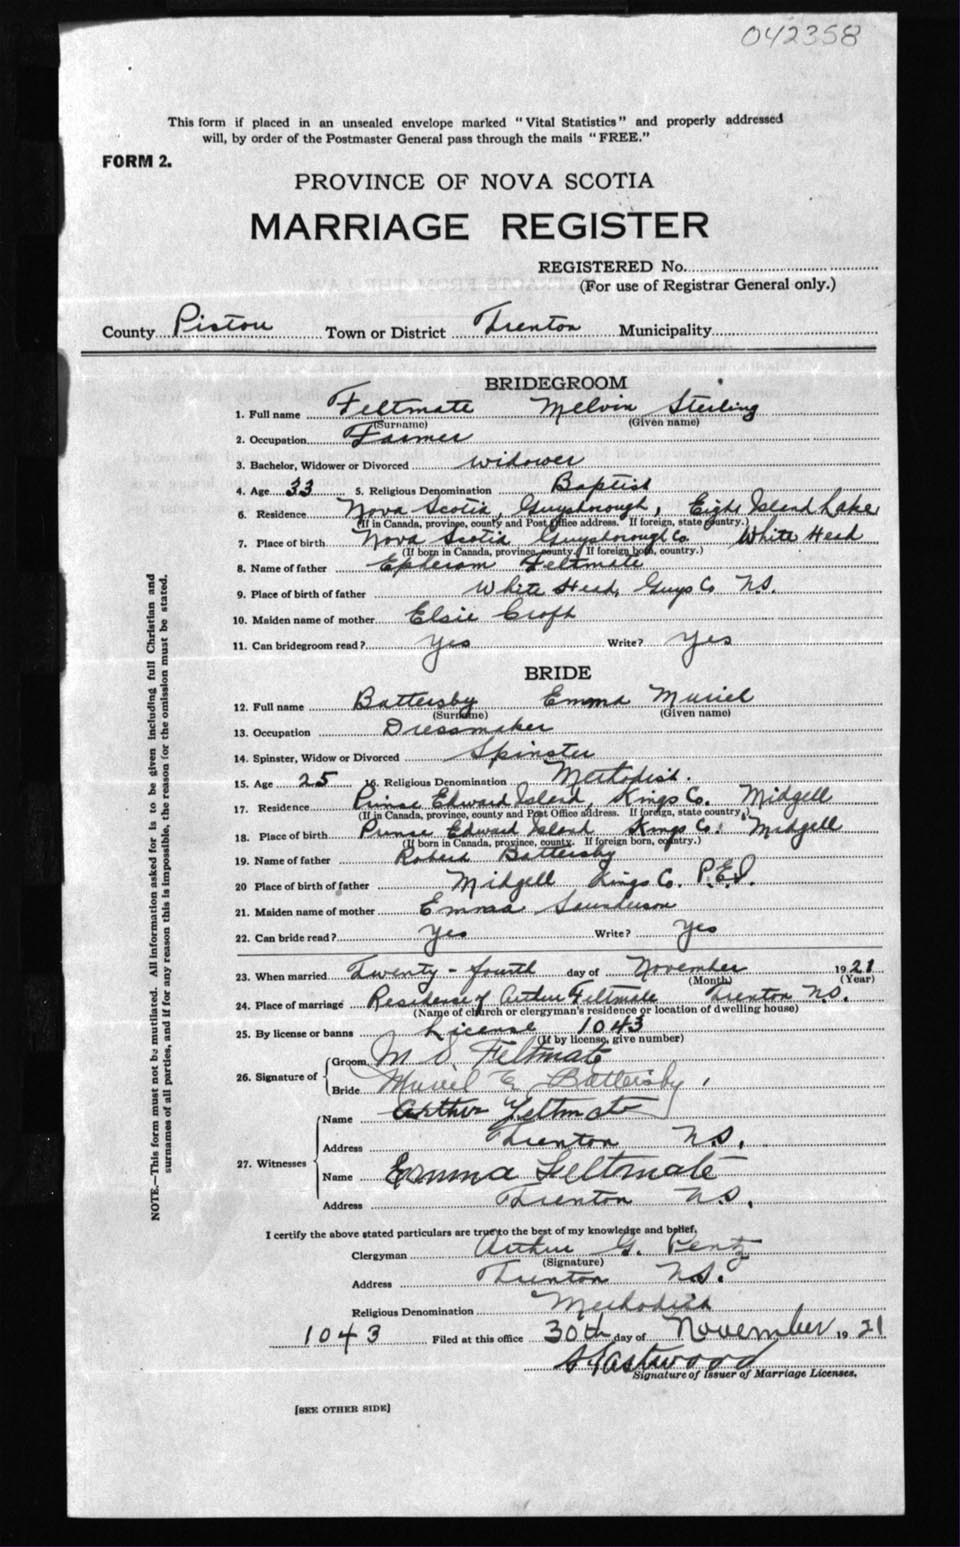 042358
This form if placed in an unsealed envelope marked "Vital Statistics" and properly addressed
will, by order of the Postmaster General pass through the mails "FREE."
FORM 2.
PROVINCE OF NOVA SCOTIA
MARRIAGE REGISTER
REGISTERED No.
(For use of Registrar General only.)
County Pictou Town or District Trenton Municipality
BRIDEGROOM
1. Full name Feltmate Melvin Sterling
(Surname) (Given name)
2. Occupation Farmer
3. Bachelor, Widower or Divorced widower
4. Age 33 5. Religious Denomination Baptist
6. Residence Nova Scotia, Guysborough, Eight Island Lake
(If in Canada, province, county and Post Office address. If foreign, state country.)
7. Place of birth Nova Scotia Guysborough Co White Head
(If born in Canada, province, county. If foreign born, country.)
8. Name of father Epheram Feltmate
9. Place of birth of father White Head, Guys Co N.S.
10. Maiden name of mother Elsie Croft
11. Can bridegroom read? Yes Write? Yes
BRIDE
12. Full name Battersby Emma Muriel
(Surname) (Given name)
13. Occupation Dressmaker
14. Spinster, Widow or Divorced Spinster
15. Age 25 16. Religious Denomination Methodist.
17. Residence Prince Edward Island, Kings Co. Midgell
(If in Canada, province, county and Post Office address. If foreign, state country.)
18. Place of birth Prince Edward Island Kings Co. Midgell
(If born in Canada, province, county. If foreign born, country.)
19. Name of father Robert Battersby
20 Place of birth of father Midgell Kings Co. P.E.I.
21. Maiden name of mother Emma
22. Can bride read? Yes Write? Yes
23. When married Twenty-fourth day of November 1921
(Month) (Year)
24. Place of marriage Residence of Arthur Feltmate Trenton N.S.
(Name of church or clergyman's residence or location of dwelling house)
25. By license or banns License 1043
(If by license, give number)
26. Signature of Groom M S Feltmate
Bride Muriel E Battersby
27. Witnesses Name Arthur Feltmate
Address Trenton N.S.
Name Emma Feltmate
Address Trenton N.S.
I certify the above stated particulars are true to the best of my knowledge and belief,
Clergyman Arthur G. Pentz
(Signature)
Address Trenton N.S.
Religious Denomination Methodist
1043 Filed at this office 30th day of November 1921
Eastwood
Signature of Issuer of Marriage Licenses.
[SEE OTHER SIDE]
NOTE.—This form must not be mutilated. All information asked for is to be given including full Christian and
surnames of all parties, and if for any reason this is impossible, the reason for the omission must be stated.